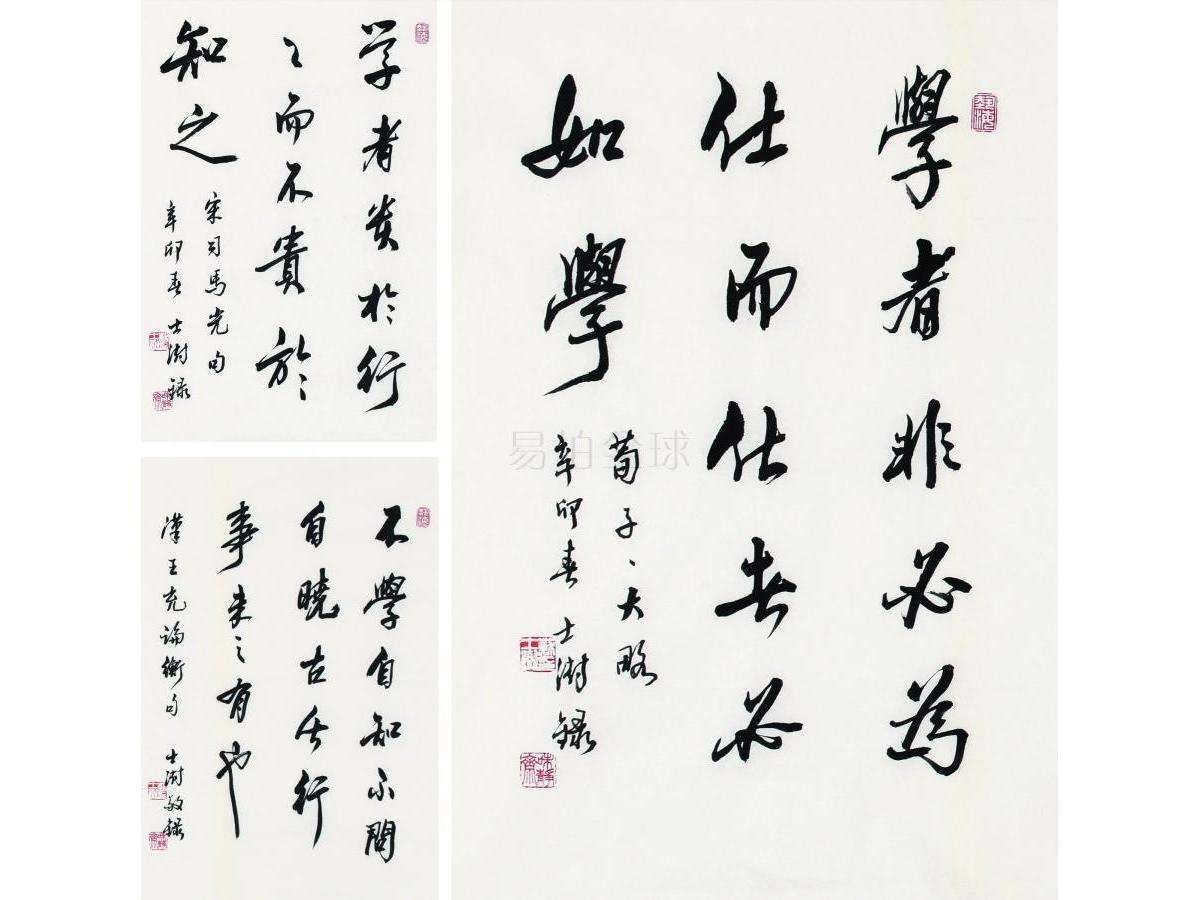 学者贵於行
之而不貴於
知之
宋司马光句
辛卯春 士澍録
不學自知不問
自曉古今行
事未之有也
漢王充論衡句 士澍敬録
學者非必為
仕而仕者必
如學
荀子、大略
辛卯春 士澍録
味靜齋
易拍全球